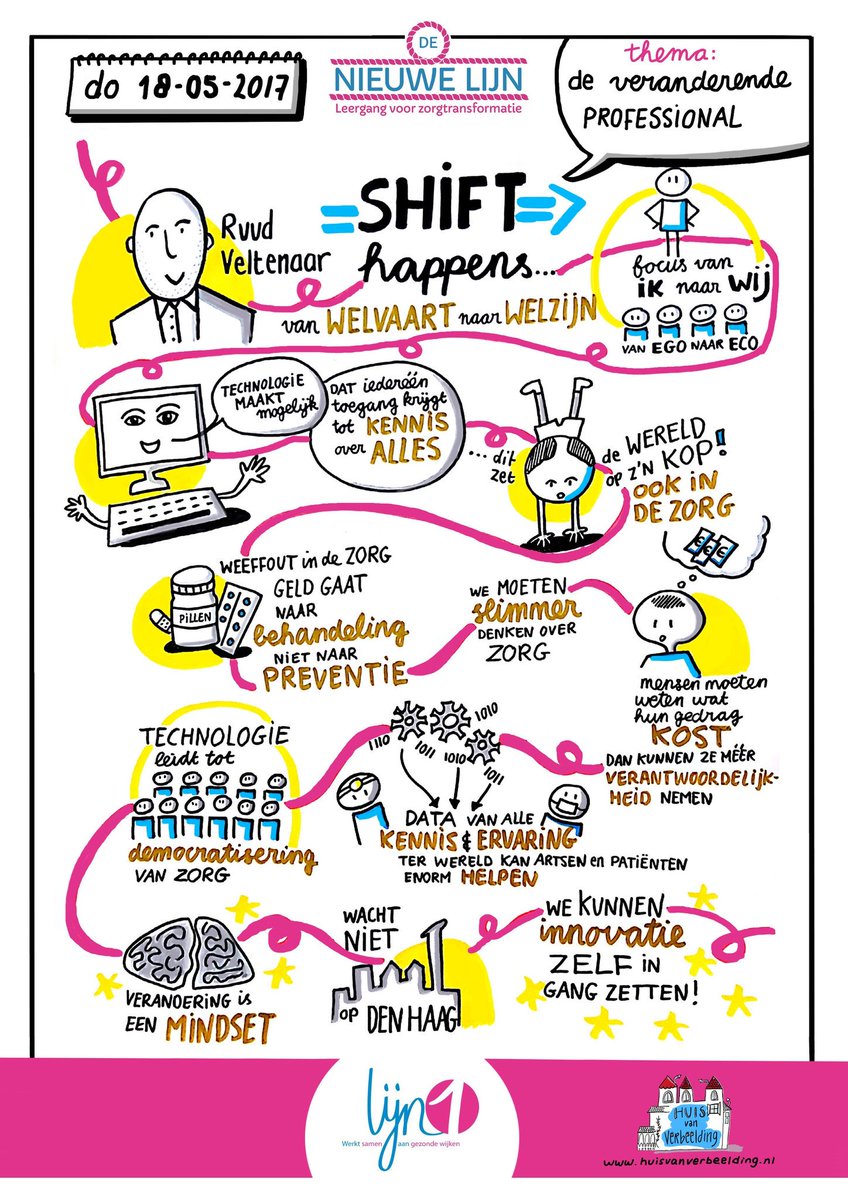 do 18-05-2017
DE
NIEUWE LIJN
Leergang voor zorgtransformatie
thema:
de veranderende
PROFESSIONAL
Ruud
Veltenaar
=SHIFT=>
happens...
van WELVAART naar WELZIJN
focus van
ik naar wij
VAN EGO NAAR ECO
TECHNOLOGIE
MAAKT
mogelijk
DAT iedereén
toegang krijgt
tot KENNIS
over
ALLES
... dit
zet
de WERELD
op z'n KOP!
OOK iN
DE ZORG
WEEFFOUT in de ZORG
GELD GAAT
NAAR
behandeling
NIET NAAR
PREVENTIE
PILLEN
WE MOETEN
slimmer
DENKEN OVER
ZORG
€€€
mensen moeten
weten wat
hun gedrag
KOST
DAN KUNNEN ZE MÉÉR
VERANTWOORDELIJK-
HEID NEMEN
TECHNOLOGIE
leidt tot
democratisering
VAN ZORG
1110
1011
1010
1010
1011
DATA VAN ALLE
KENNIS & ERVARING
TER WERELD KAN ARTSEN en PATIËNTEN
ENORM HELPEN
VERANDERING is
EEN MINDSET
WACHT
NIET
op DEN HAAG
WE KUNNEN
innovatie
ZELF in
GANG ZETTEN!
lijn1
Werkt samen aan gezonde wijken
HUIS
van
Verbeelding
www.huisvanverbeelding.nl